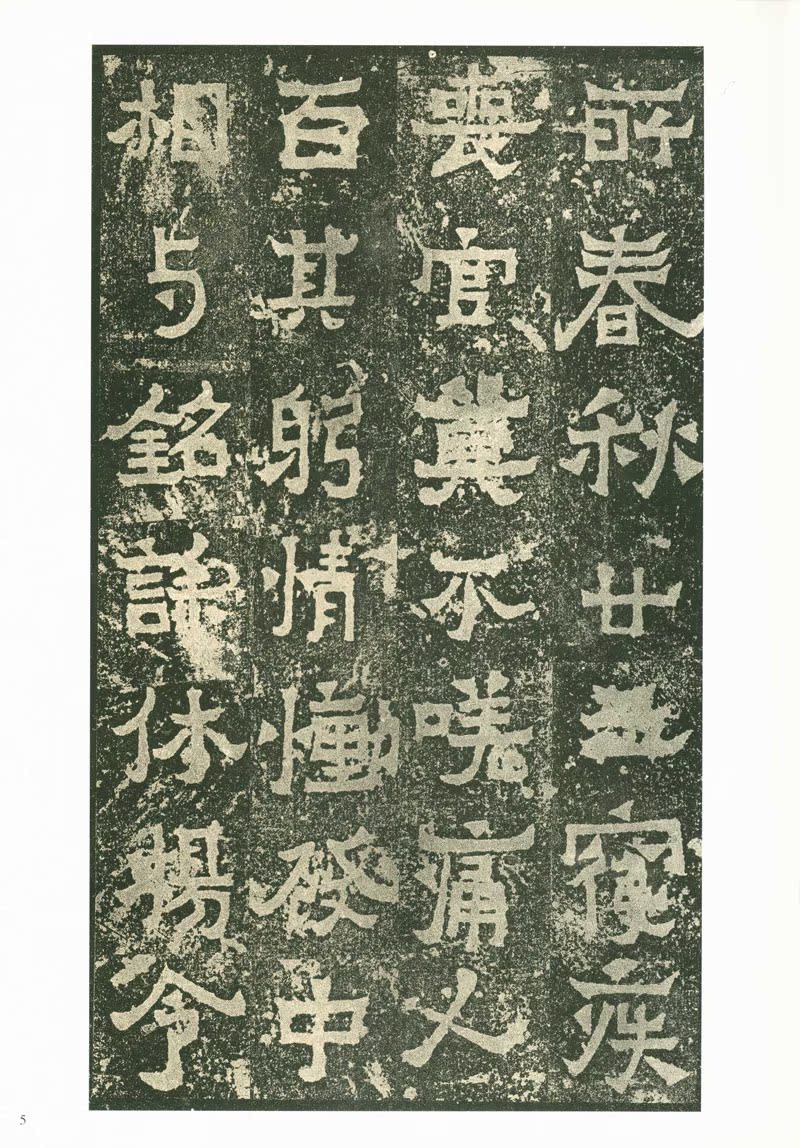 所春秋廿寑疾
喪官莫不嗟痛人
百其躬情慟發中
相与銘誄休揚令
5